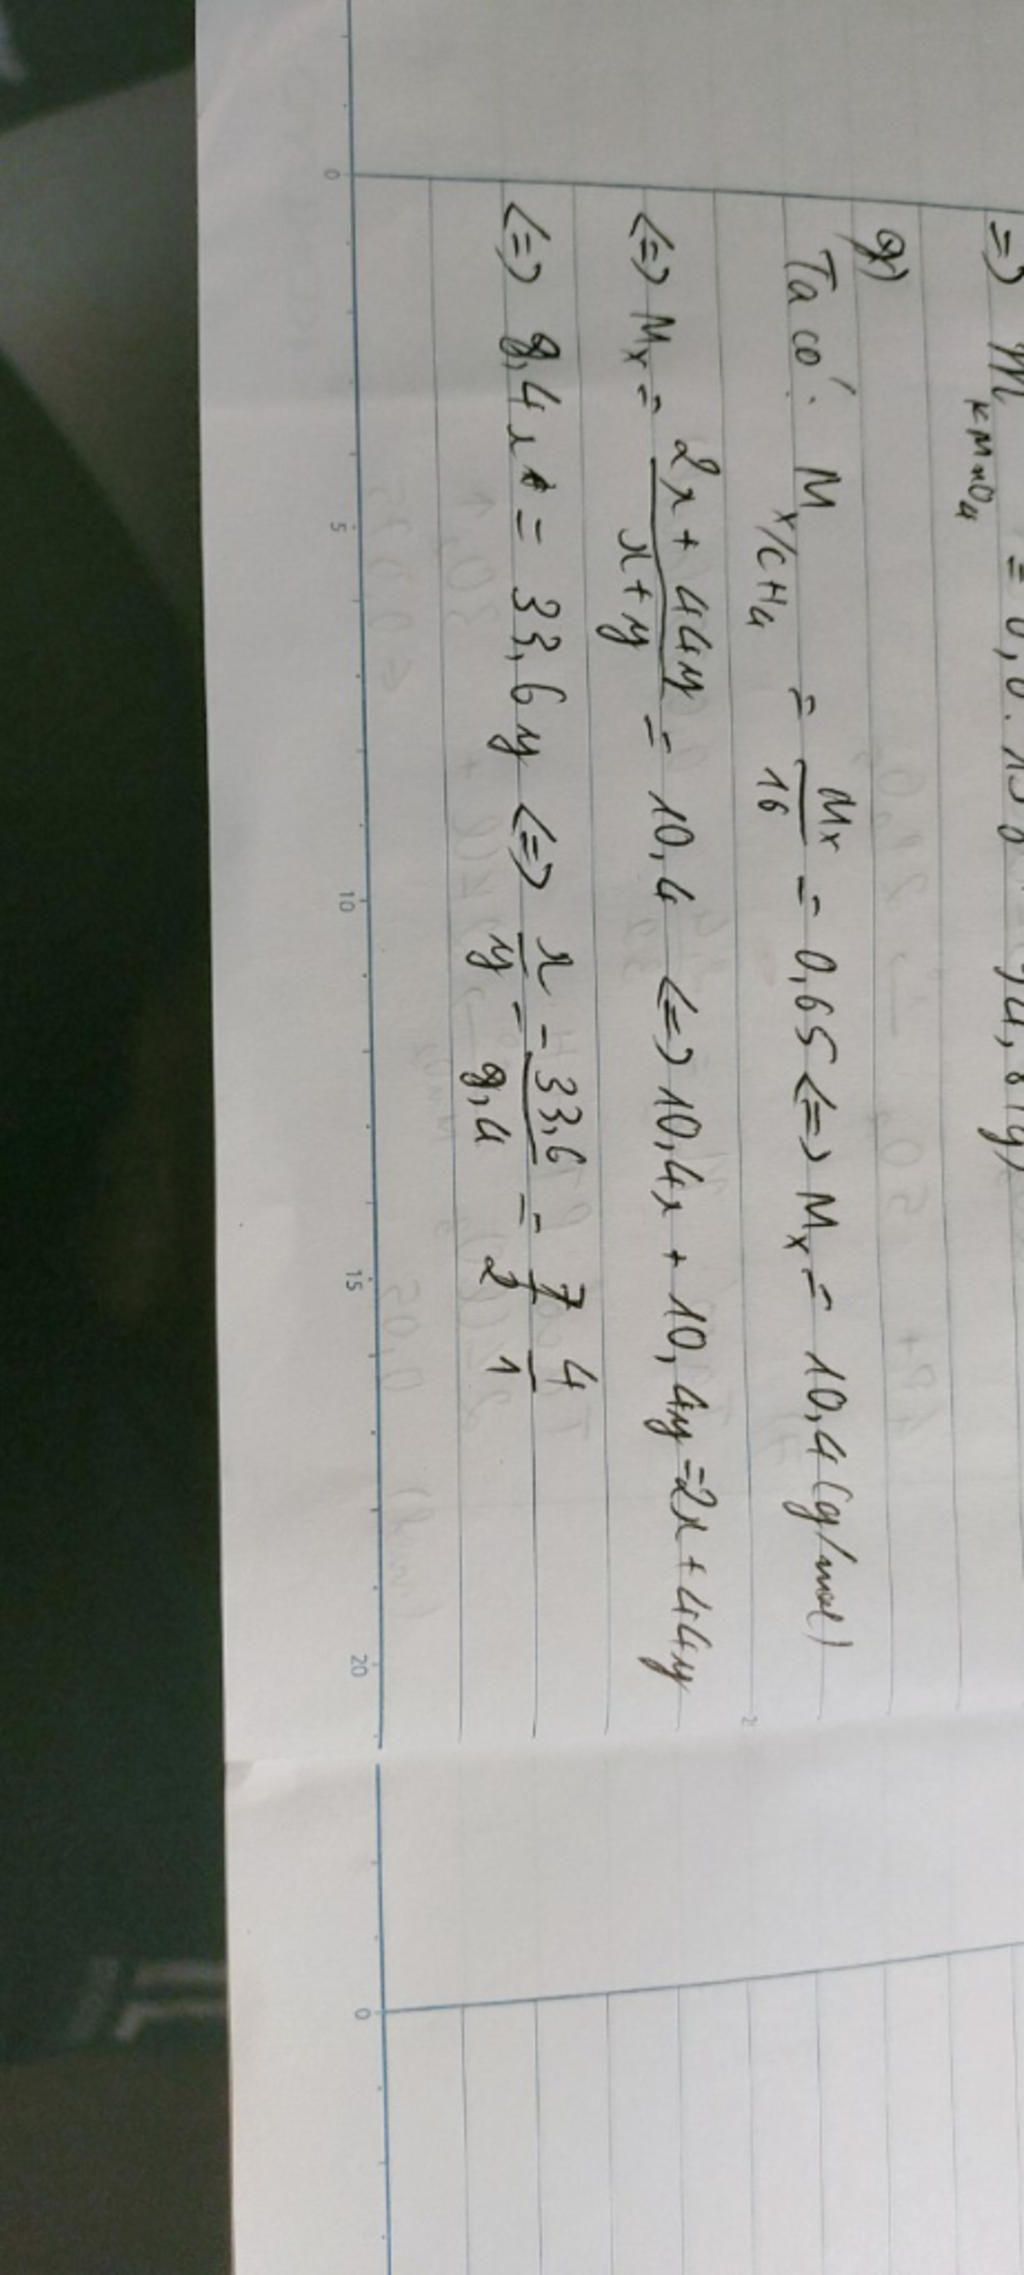 =) m KMnO4 = 0,6 . 158 = 94,8 (g)
g)
Ta có: M X/CH4 = Mx/16 = 0,65 <=> Mx = 10,4 (g/mol)
<=> Mx = (2x + 44y)/(x+y) = 10,4 <=> 10,4x + 10,4y = 2x + 44y
<=> 8,4x = 33,6y <=> x/y = 33,6/8,4 = 7/2 4/1
0 5 10 15 20 0